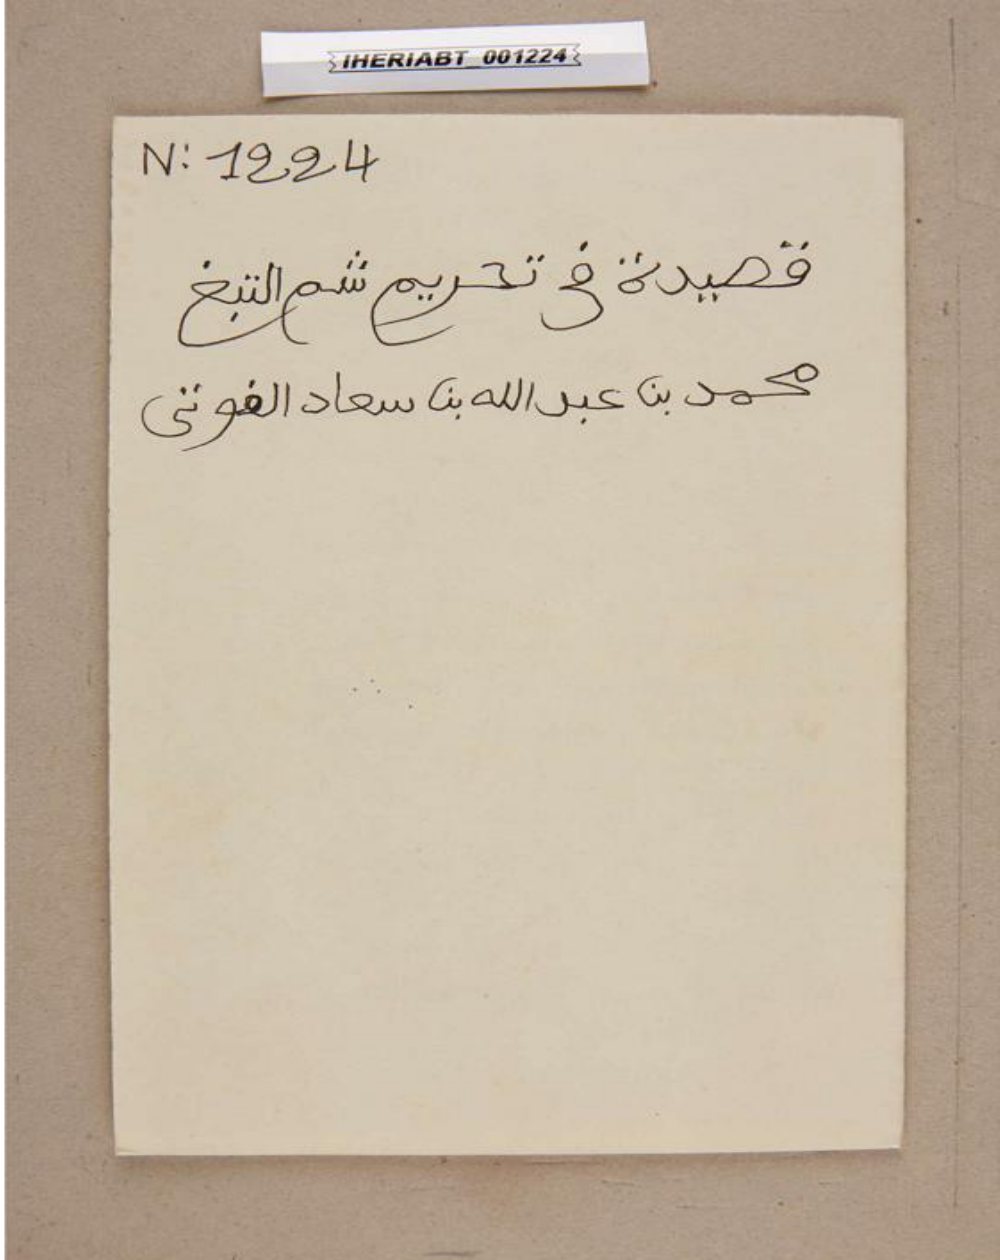 IHERIABT_001224
N: 1224
قصيدة في تحريم شم التبغ
محمد بن عبد الله بن سعاد الفوتي